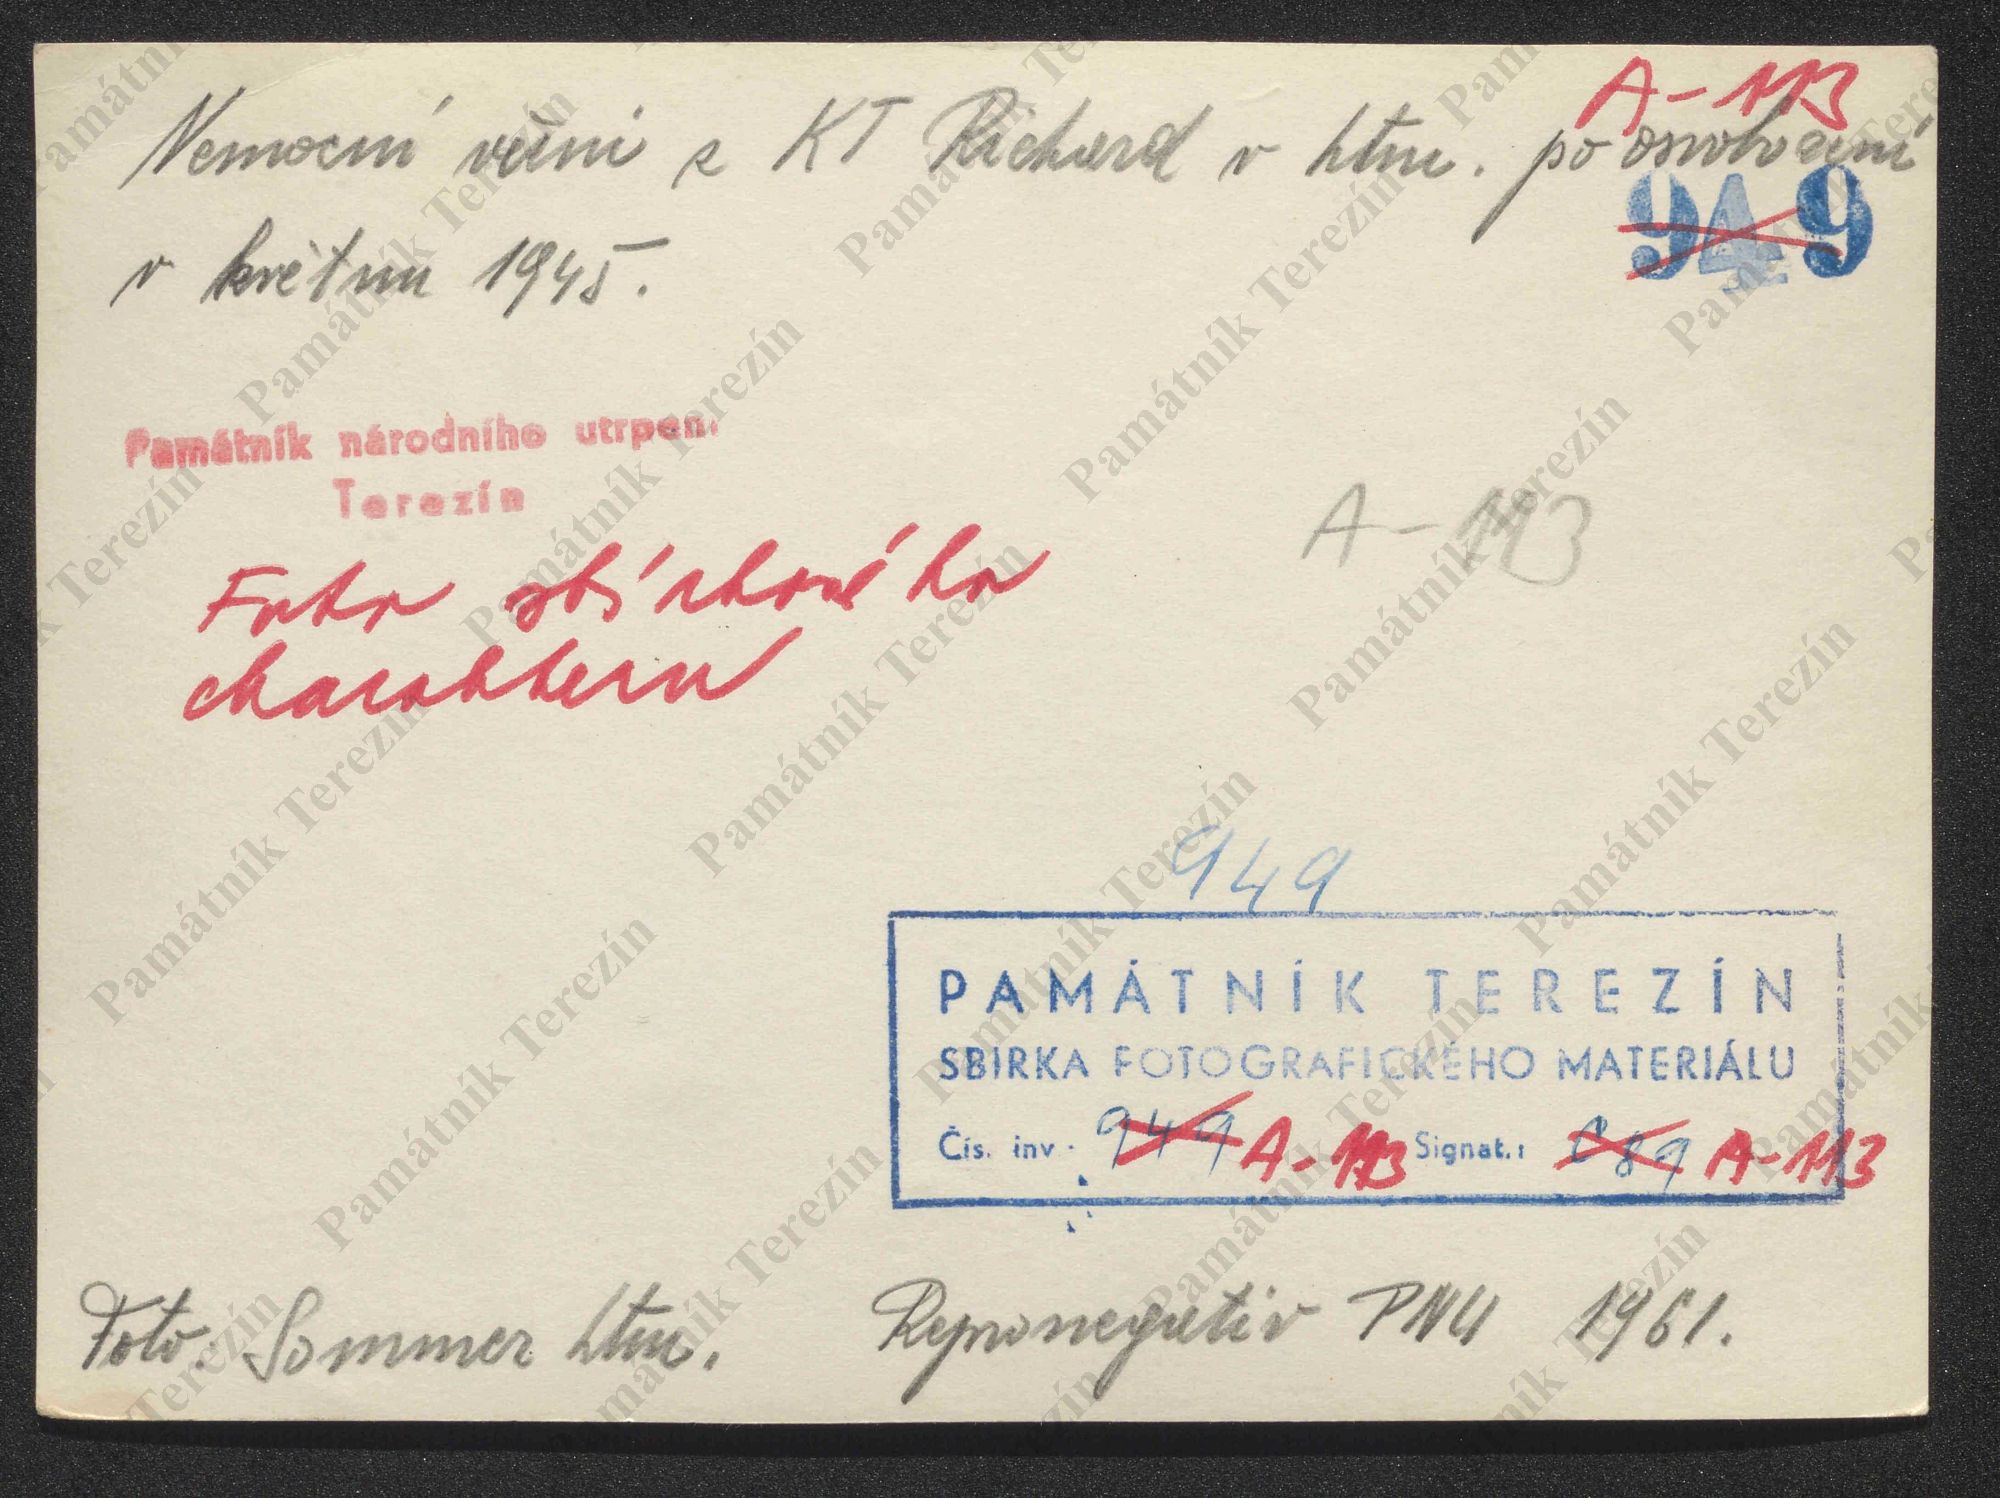 A-113
Nemocní vězni z KT Richard v Ltm. po osvobození
949
v květnu 1945.
Památník národního utrpení
Terezín
A-113
Foto sbírkového
charakteru
949
PAMÁTNÍK TEREZÍN
SBÍRKA FOTOGRAFICKÉHO MATERIÁLU
Čís. inv. 949 A-113 Signat.: C 89 A-113
Foto Sommer Ltm. Repronegativ PNU 1961.
Památník Terezín